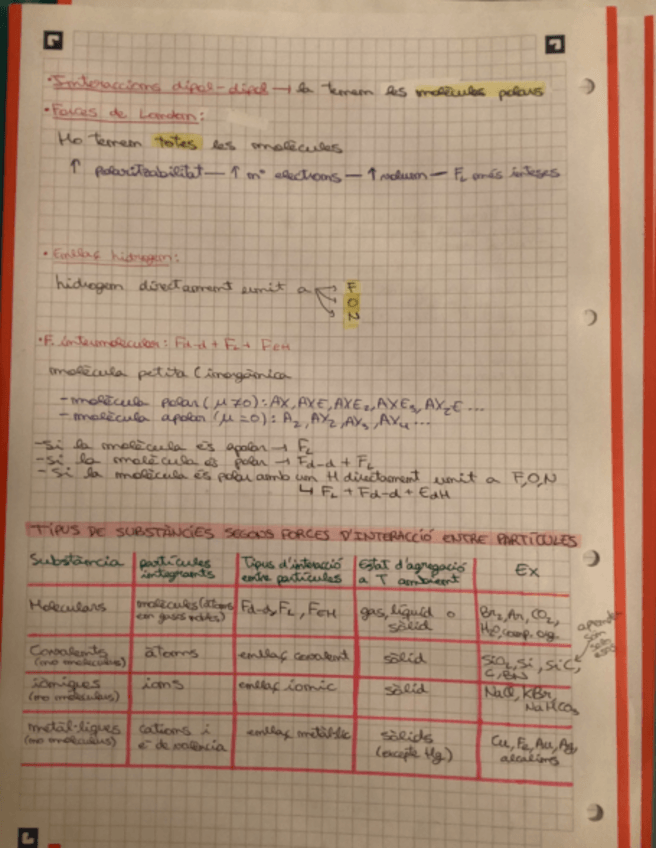 ·Interaccions dipol-dipol → la tenem les molècules polars
·Forces de London:
Ho tenem totes les molècules
↑ polaritzabilitat — ↑ nº electrons — ↑ volum — FL més intenses
·Enllaç hidrogen:
hidrogen directament unit a F
O
N
·F. intermolecular: Fd-d + FL + FEH
molècula petita (inorgànica
-molècula polar (μ≠0): AX, AXE, AXE2, AXE3, AX2E ...
-molècula apolar (μ=0): A2, AX2, AX3, AX4 ...
-Si la molècula és apolar → FL
-Si la molècula és polar → Fd-d + FL
-Si la molècula és polar amb un H directament unit a F,O,N
↳ FL + Fd-d + EdH
TIPUS DE SUBSTÀNCIES SEGONS FORCES D'INTERACCIÓ ENTRE PARTÍCULES
Substància partícules integrants Tipus d'interacció entre partícules Estat d'agregació a T ambient Ex
Moleculars molècules (àtoms en gasos nobles) Fd-d, FL, FEH gas, líquid o sòlid Br2, Ar, CO2, H2O, comp. org.
Covalents (no moleculars) àtoms enllaç covalent sòlid SiO2, Si, SiC, C, BN
són
iòniques (no moleculars) ions enllaç iònic sòlid NaCl, KBr, NaHCO3
metàl·liques (no moleculars) cations i e- de valència enllaç metàl·lic sòlids (excepte Hg) Cu, Fe, Au, Ag, alcalins